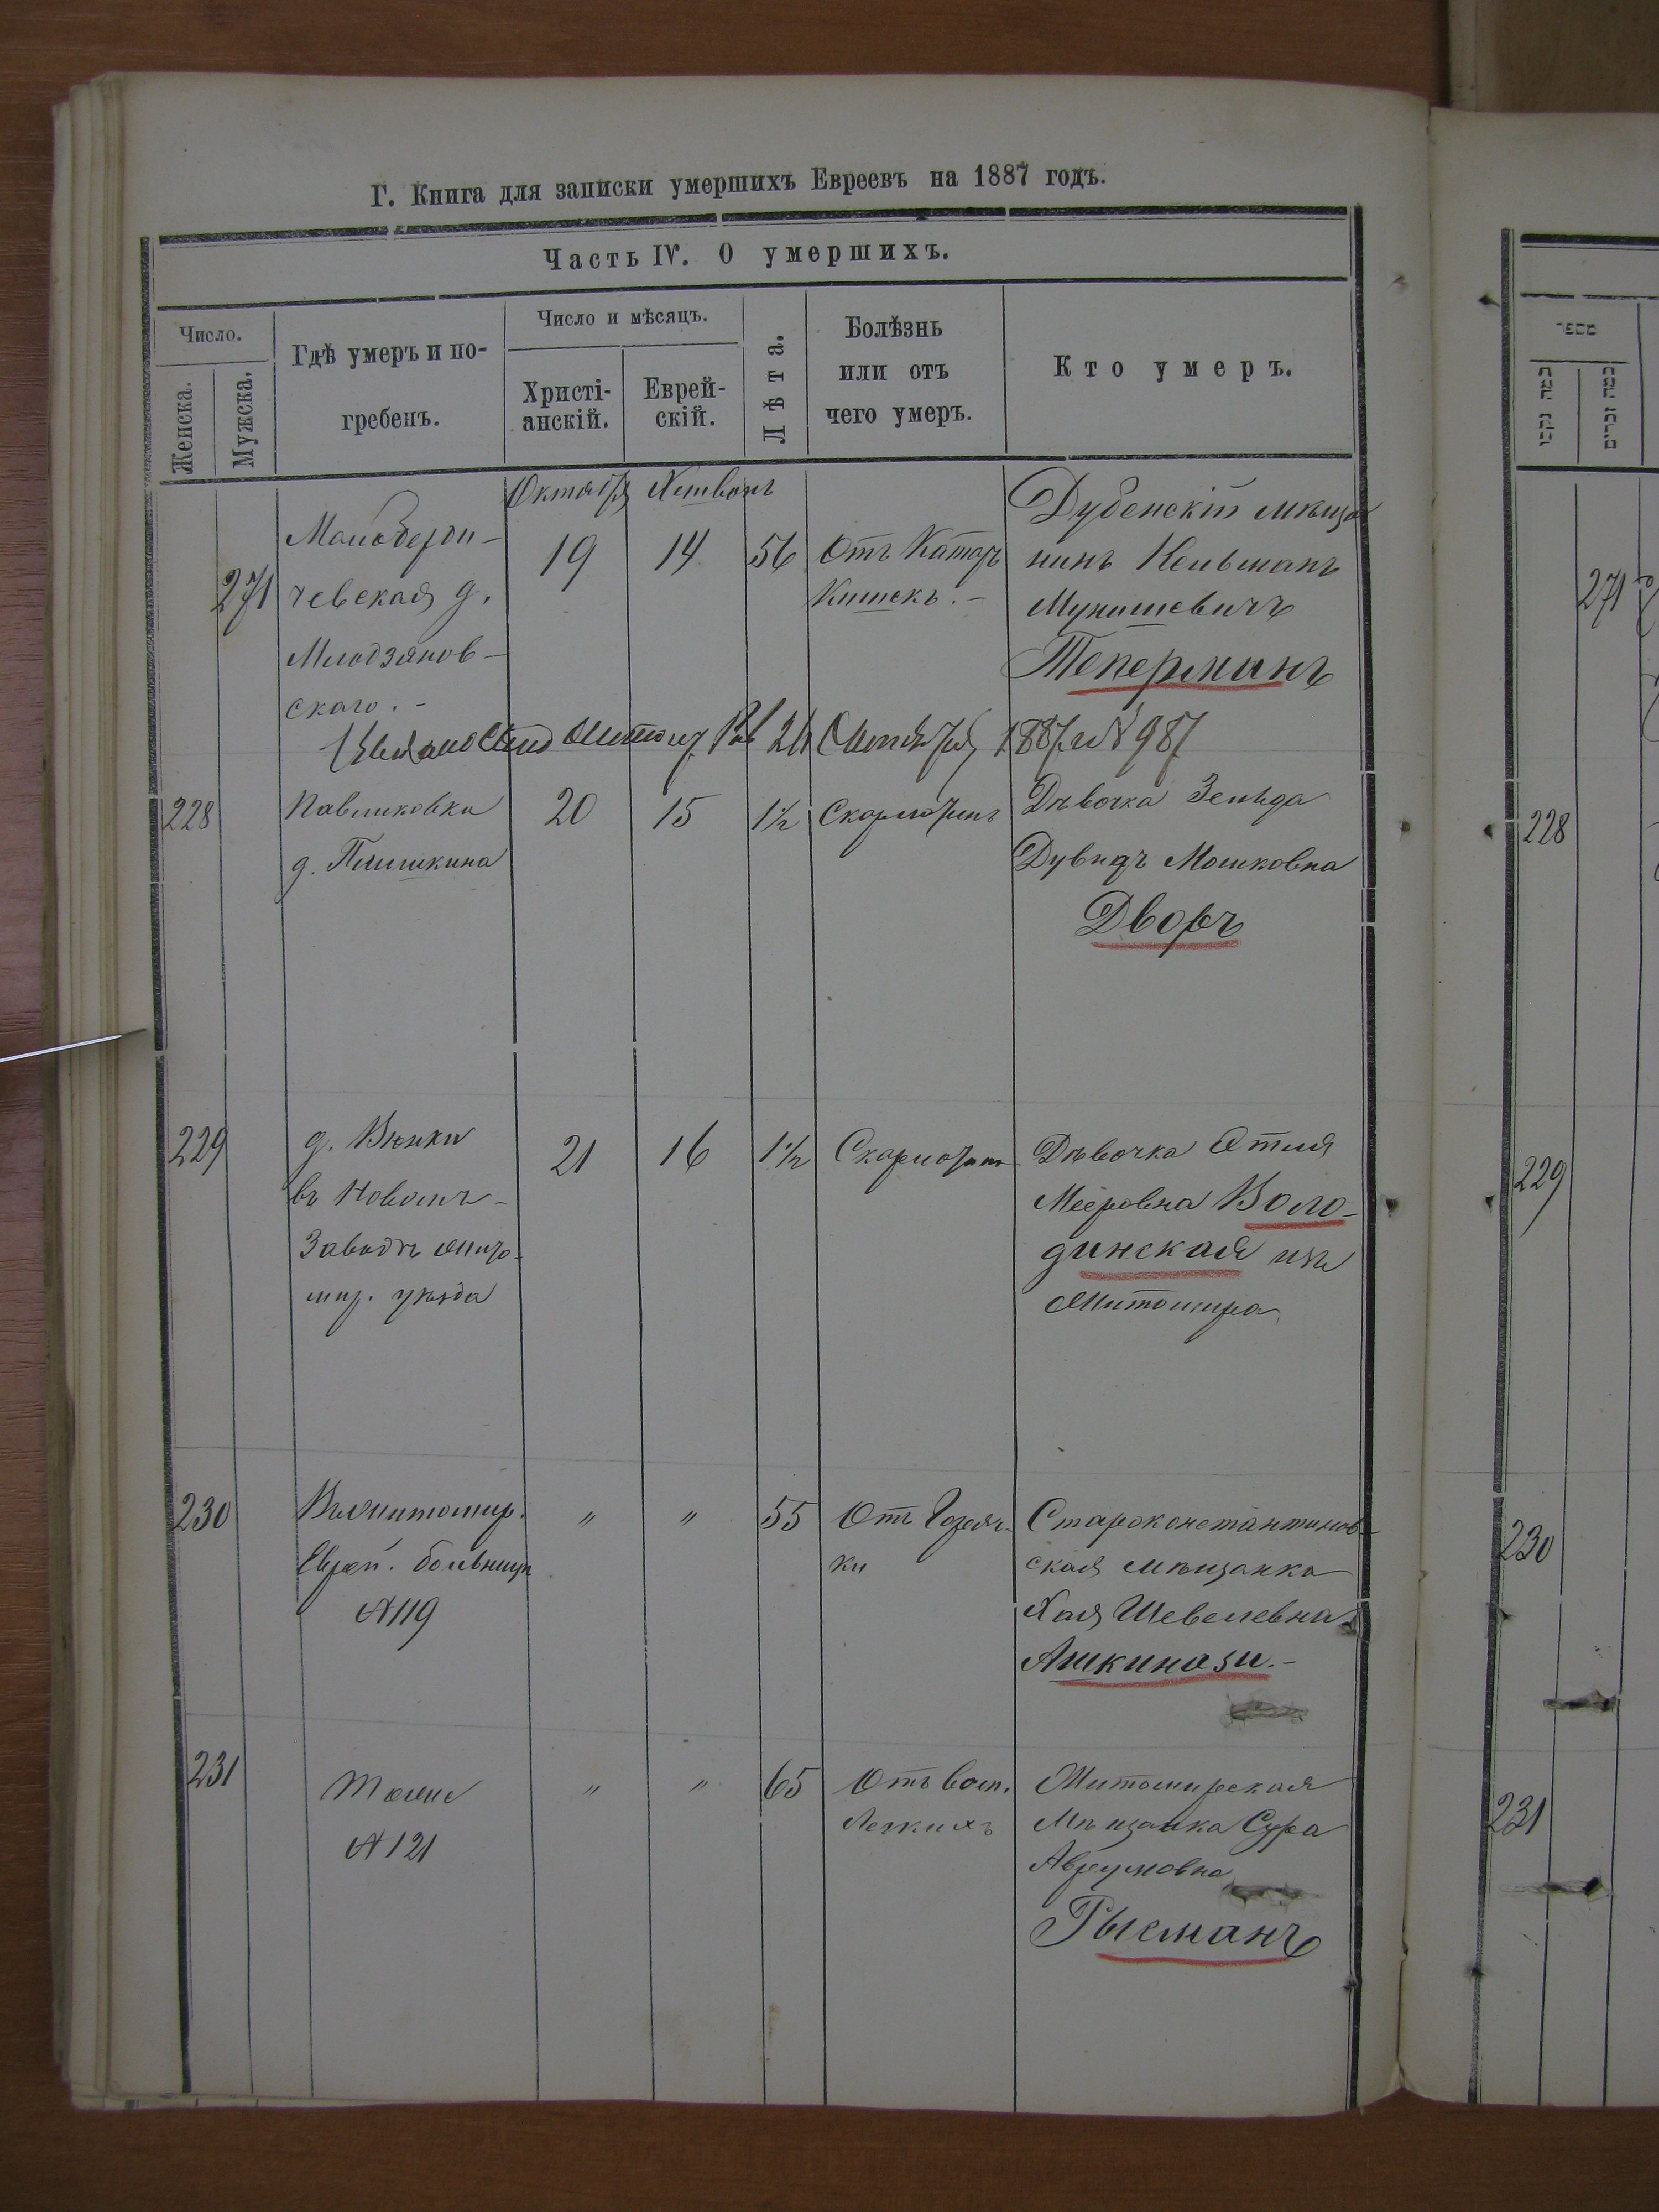 Г. Книга для записки умершихъ Евреевъ на 1887 годъ.
Часть IV. О умершихъ.
Число.
Женска.
Мужска.
Гдѣ умеръ и по-
гребенъ.
Число и мѣсяцъ.
Христі-
анскій.
Еврей-
скій.
Лѣта.
Болѣзнь
или отъ
чего умеръ.
Кто умеръ.
Октября Хешвонъ
271
Малобердичевская д.
Млодзянов-
скаго.-
19
14
56
Отъ Катар
Кишекъ.-
Дубенскій мѣща
нинъ Кельманъ
Мунишевичъ
Теперманъ
24 1887 № 987
228
Павликовка
д. Пишкина
20
15
1½
Скарлатин
Дѣвочка Зельда
Дувидъ Мошковна
Дворъ
229
въ Новомъ-
Заводѣ
уѣзда
21
16
1½
Скарлатин
Дѣвочка Этля
Мееровна Воло-
динская изъ
Житомира
230
Въ Житомир.
Еврей. больницѣ
№ 119
"
"
55
Отъ Горяч-
ки
Староконстантинов-
ская мѣщанка
Хая Шевелевна
Ашкинази.-
231
Тоже
№ 121
"
"
65
Отъ восп.
Легкихъ
Житомирская
Мѣщанка Сура
Аврумовна
Рысманъ
מספר
271
228
229
230
231